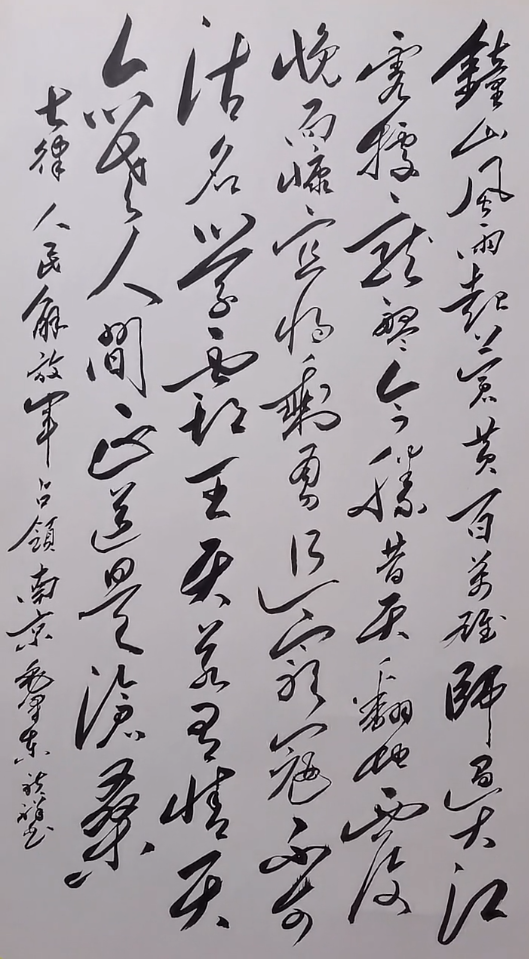 鐘山風雨起蒼黃百萬雄師過大江
虎踞龍盤今勝昔天翻地覆
慨而慷宜將剩勇追窮寇不可
沽名學霸王天若有情天
亦老人間正道是滄桑
七律人民解放軍占領南京毛澤東書